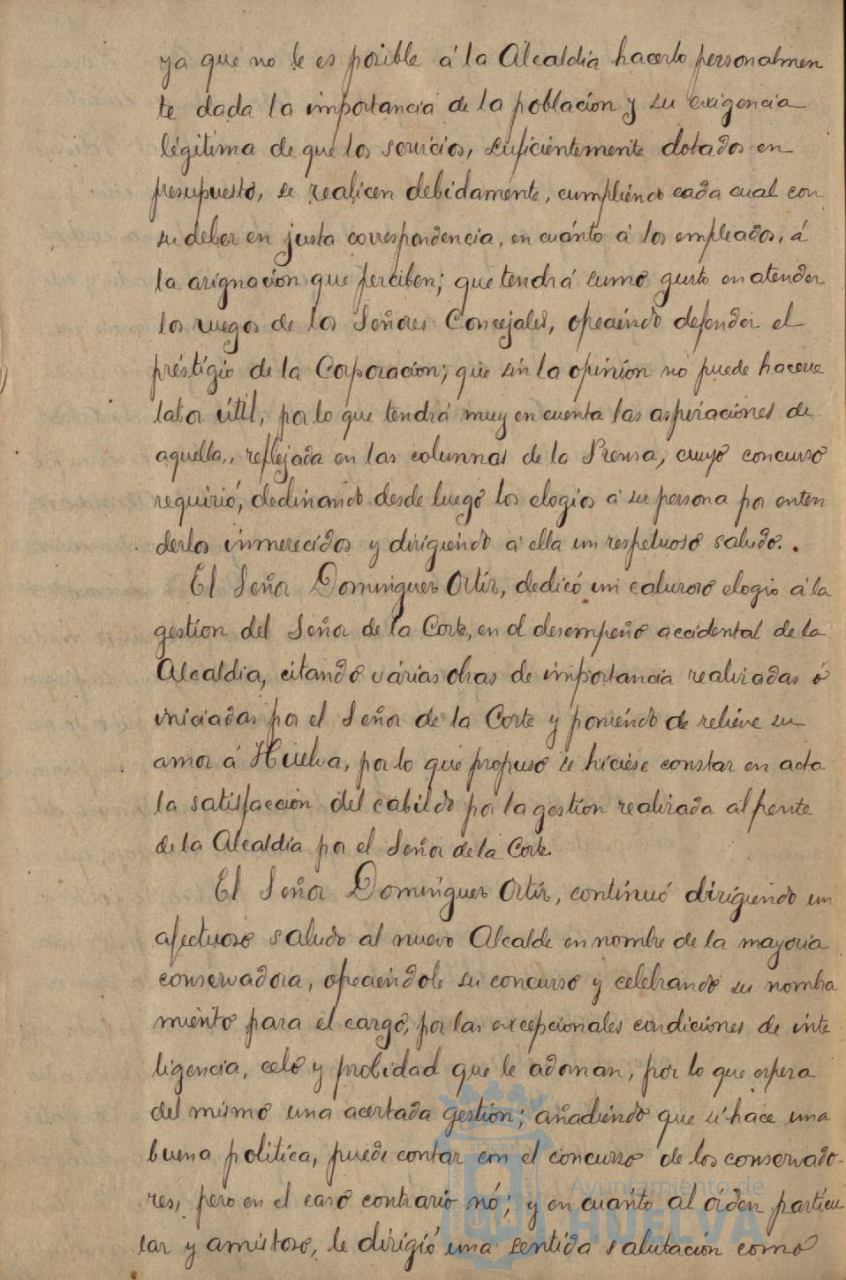 ya que no le es posible á la Alcaldía hacerlo personalmen
te dada la importancia de la poblacion y su exigencia
legítima de que los servicios, suficientemente dotados en
presupuesto, se realicen debidamente, cumpliendo cada cual con
su deber en justa correspondencia, en cuánto á los empleados, á
la asignacion que perciben; que tendrá sumo gusto en atender
los ruegos de los Señores Concejales, ofreciendo defender el
prestigio de la Corporacion; que sin la opinion no puede hacerse
labor útil, por lo que tendrá muy en cuenta las aspiraciones de
aquella, reflejada en las columnas de la Prensa, cuyo concurso
requirió, declinando desde luego los elogios á su persona por enten
derlos inmerecidos y dirigiendo á ella un respetuoso saludo.
El Señor Dominguez Ortiz, dedicó un caluroso elogio á la
gestion del Señor de la Corte, en el desempeño accidental de la
Alcaldia, citando várias obras de importancia realizadas ó
iniciadas por el Señor de la Corte y poniendo de relieve su
amor á Huelva, por lo que propuso se hiciese constar en acta
la satisfaccion del cabildo por la gestion realizada al frente
de la Alcaldía por el Señor de la Corte.
El Señor Dominguez Ortiz, continuó dirigiendo un
afectuoso saludo al nuevo Alcalde en nombre de la mayoria
conservadora, ofreciéndole su concurso y celebrando su nombra
miento para el cargo, por las excepcionales condiciones de inte
ligencia, celo y probidad que le adornan, por lo que espera
del mismo una acertada gestion; añadiendo que si hace una
buena politica, puede contar con el concurso de los conservado-
res, pero en el caso contrario nó; y en cuanto al órden particu
lar y amistoso, le dirigió una sentida salutación como
Ayuntamiento de
HUELVA